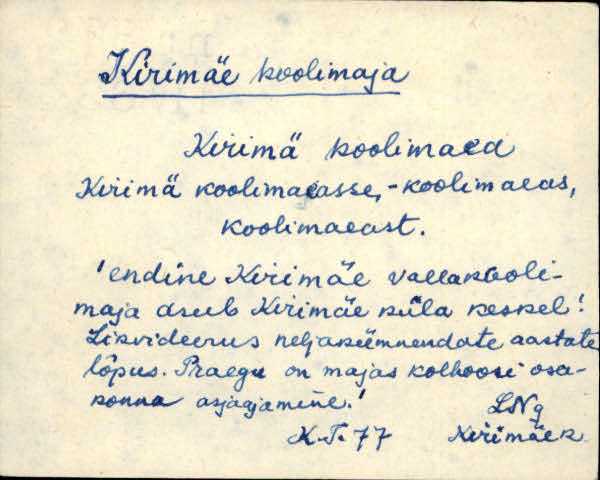 Kirimäe koolimaja
Kirimä koolimaea
Kirimä koolimaeasse, -koolimaeas,
koolimaeast.
'endine Kirimäe vallakooli-
maja asub Kirimäe küla keskel!
Likvideerus neljakümnendate aastate
lõpus. Praegu on majas kolhoosi osa-
konna asjaajamine.'
LNg
K.T. 77 Kirimäe k.